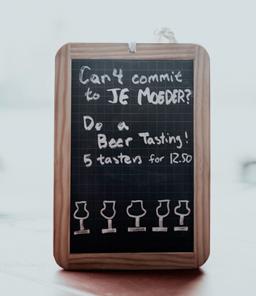 Can't commit
to JE MOEDER?
Do a
Beer Tasting!
5 tasters for 12.50